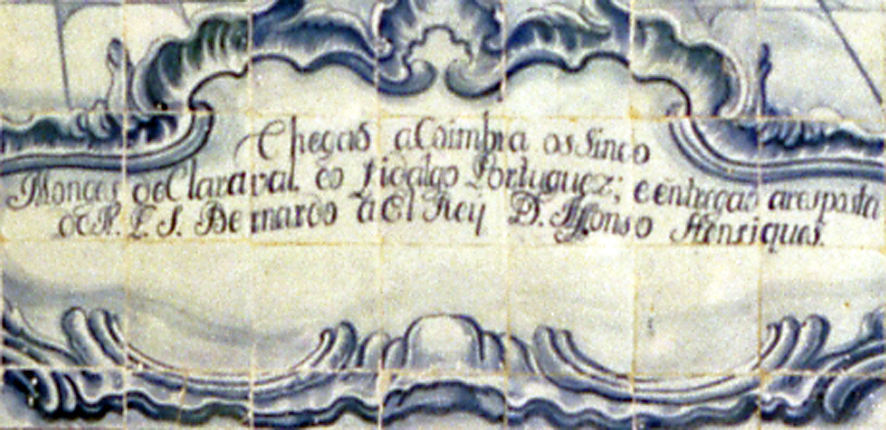 Chegaõ a Coimbra os Sinco
Monges de Claraval, eo Fidalgo Portuguez; e entregaõ a resposta
de N. P. S. Bernardo a El Rey D. Affonso Henriques.